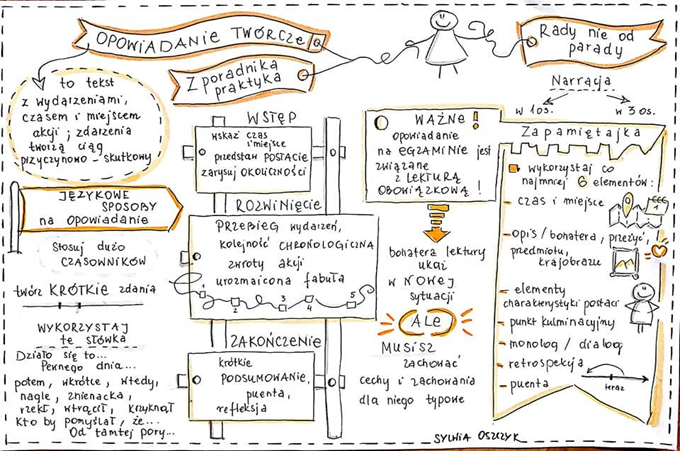 OPOWIADANIE TWÓRCZE
Z poradnika
praktyka
Rady nie od
parady
to tekst
z wydarzeniami,
czasem i miejscem
akcji; zdarzenia
tworzą ciąg
przyczynowo-skutkowy
JĘZYKOWE
SPOSOBY
na OPOWIADANIE
STOSUJ DUŻO
CZASOWNIKÓW
twórz KRÓTKIE zdania
WYKORZYSTAJ
te słówka
Działo się to...
Pewnego dnia...
potem, wkrótce, wtedy,
nagle, znienacka,
rzekł, wtrącił, krzyknął
Kto by pomyślał, że...
Od tamtej pory...
WSTĘP
wskaż czas
i miejsce
przedstaw POSTACIE
zarysuj OKOLICZNOŚCI
ROZWINIĘCIE
PRZEBIEG wydarzeń,
kolejność CHRONOLOGICZNA
zwroty akcji
urozmaicona fabuła
1 2 3 4 5
ZAKOŃCZENIE
krótkie
PODSUMOWANIE,
puenta,
refleksja
WAŻNE!
opowiadanie
na EGZAMINIE jest
związane
z LEKTURĄ
OBOWIĄZKOWĄ!
bohatera lektury
ukaż
w NOWEJ
sytuacji
ALE
MUSISZ
zachować
cechy i zachowania
dla niego typowe
Narracja
w 1 os. w 3 os.
Zapamiętajka
wykorzystaj co
najmniej 6 elementów:
- czas i miejsce
- opis / bohatera, przeżyć,
przedmiotu,
krajobrazu
- elementy
charakterystyki postaci
- punkt kulminacyjny
- monolog / dialog
- retrospekcja
- puenta
teraz
SYLWIA OSZCZYK